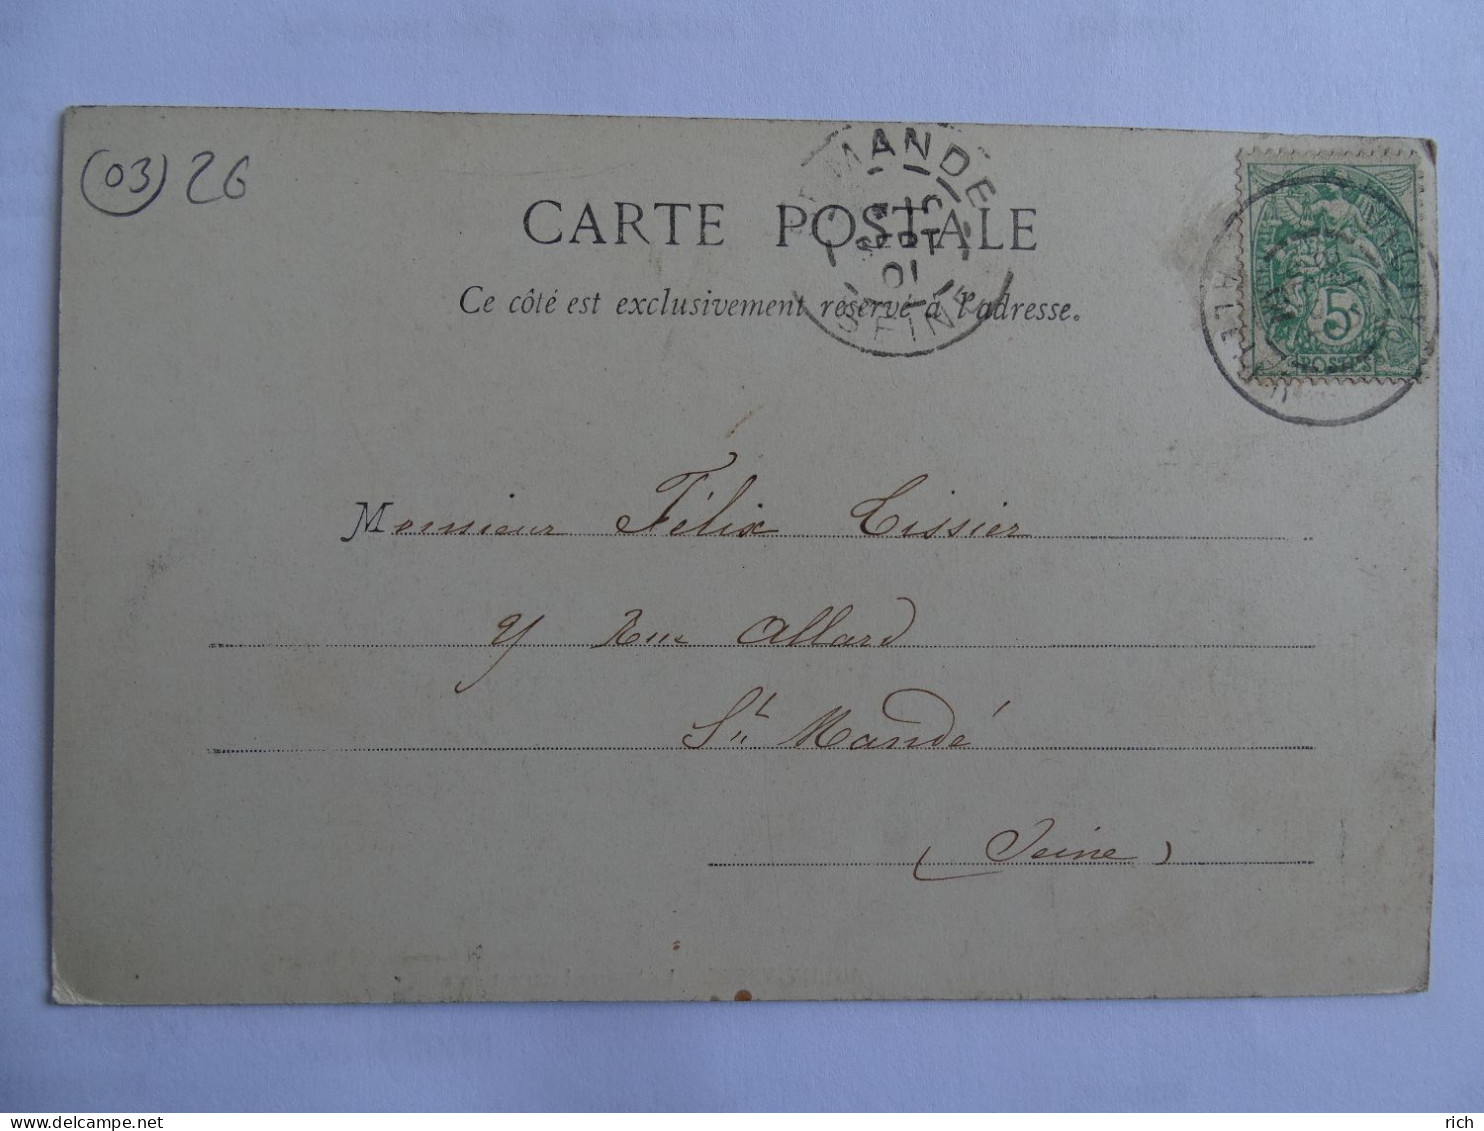 (03) 26
CARTE POSTALE
Ce côté est exclusivement réservé à l'adresse.
MANDE
SEPT
01
SEINE
5
POSTES
Monsieur Félix Tissier
Rue Allard
St Mandé
(Seine)
rich